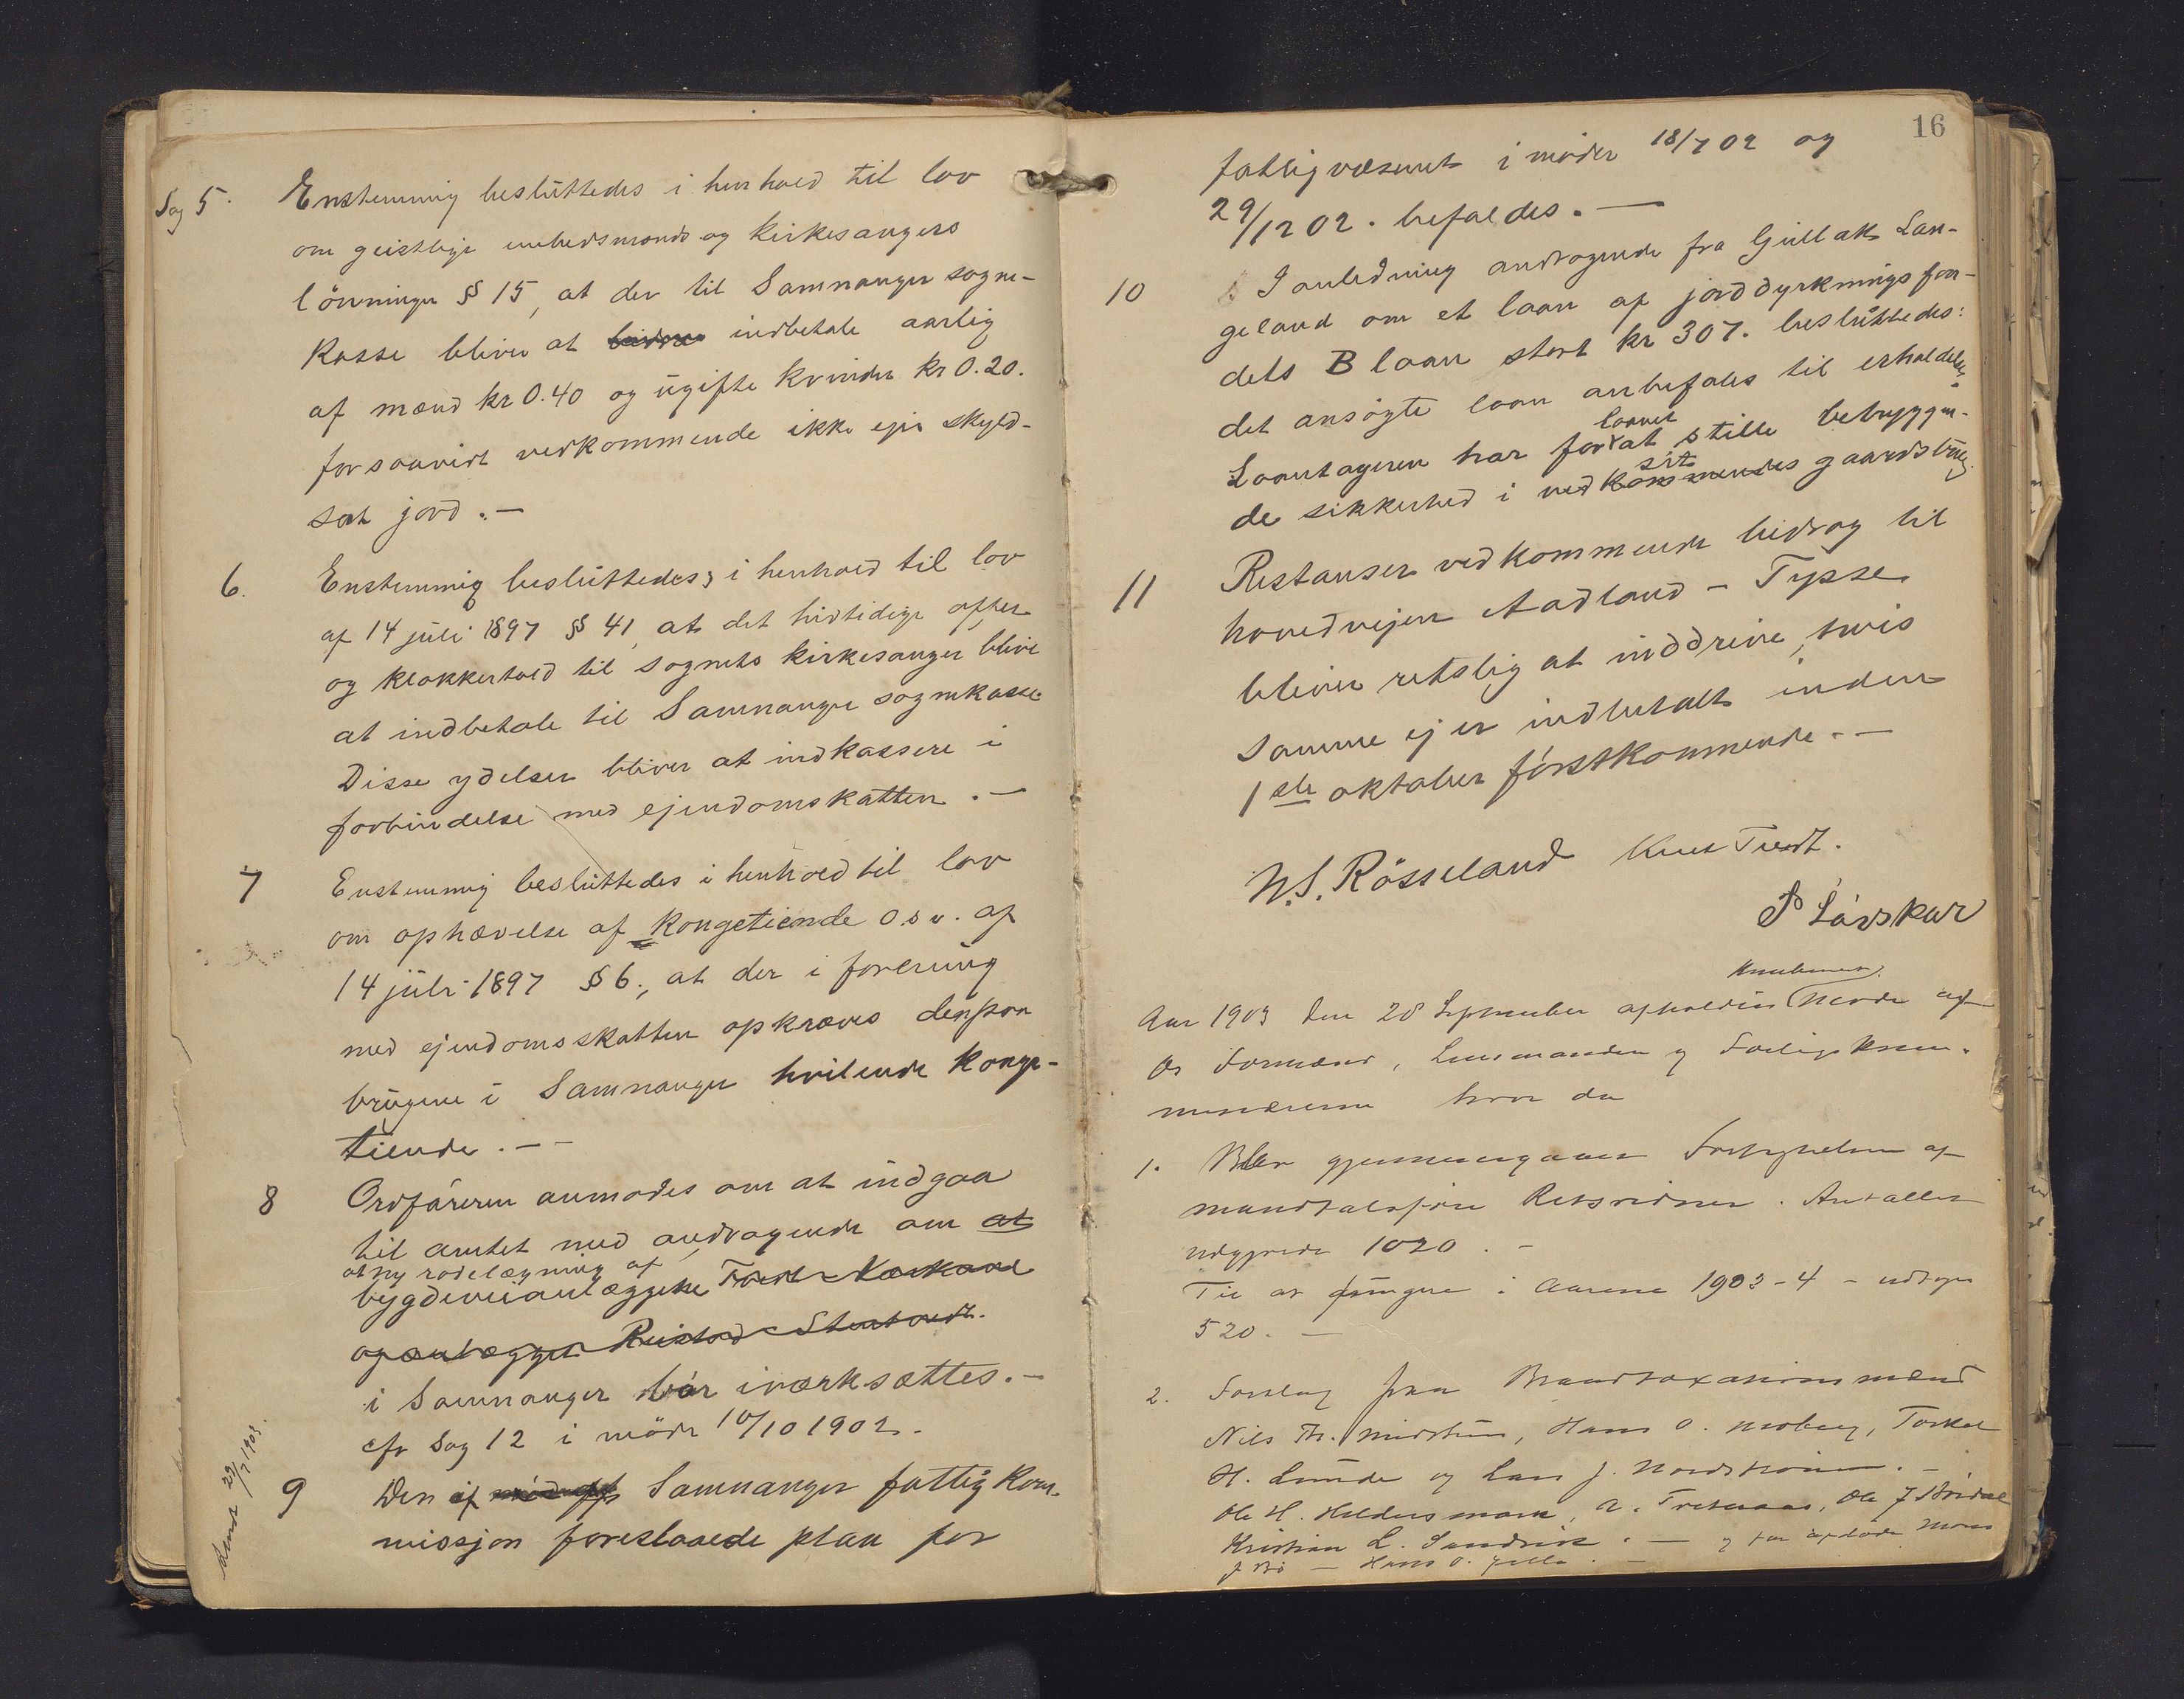 Sag 5. Enstemmig beslüttedes i henhold til lov
om geistlige embedsmænds og kirkesangers
lönninger §§ 15, at der til Samnanger sogne-
kasse bliver at indbetale aarlig
af mænd kr 0.40 og ügifte kvinder kr 0.20.
forsaavidt vedkommende ikke ejer skyld-
sat jord.—
6. Enstemmig beslüttedes, i henhold til lov
af 14 jüli 1897 §§ 41, at det hidtidige offer
og klokkertold til sognets kirkesanger blive
at indbetale til Samnanger sognekasse.
Disse ydelser bliver at indkassere i
forbindelse med ejendomskatten.—
7 Enstemmig beslüttedes i henhold til lov
om ophævelse af kongetiende o.s.v. af
14 jüli 1897 §6., at der i forening
med ejendomsskatten opkræves den paa
brügene i Samnanger hvilende konge-
tiende.— -
8 Ordføreren anmodes om at indgaa
til amtet med andragende om at
at ny rodelægning af
bygdeveianlæggene
og anlægget Reistad - Stentvedt.
i Samnanger bør iværksættes.—
cfr Sag 12 i möde 10/10 1902.
9 Den af Samnanger fattigkom-
missjon foreslaaede plan for
Sendt 29/7 1903.
16
fattigvæsenet i møder 18/7 02 og
29/12 02. befaldes.—
10 I anledning andragende fra Gullak Lan-
geland om et laan af jorddyrkningsfon-
dets B laan stort kr 307. beslüttedes:
det ansøgte laan anbefales til erholdelse.
laanet
Laantageren har for at stille betryggen-
sit
de sikkerhed i vedkommendes gaardsbrüg.
11 Restanser vedkommende bidrag til
hovedvejen Aadland - Tysse
bliver retslig at inddrive, hvis
samme ej er indbetalt inden
1ste oktober förstkommende.- —
N.S. Rösseland Knut Tvedt.
P Lövskar
Aar 1903 den 28 September afholdtes Møde af
Os Formænd, Lensmanden og Fattigkom-
missærerne hvor da
1. Blev gjennemgaaet Fortegnelsen af
mandtalsføre Retsvidner. Antallet
udgjorde 1020.—
Til at füngere i Aarene 1903-4 - udtoges
520.—
2. Forslag paa Brandtaxationsmænd
Nils Th. Midttün, Hans O. Moberg, Torkel
H. Lünde og Lars J. Nordstrønen.—
Ole H. Haldersmark, A. Ole J
Kristian L. Sandvik.— og for afdøde Mons
J Bö — Hans O.